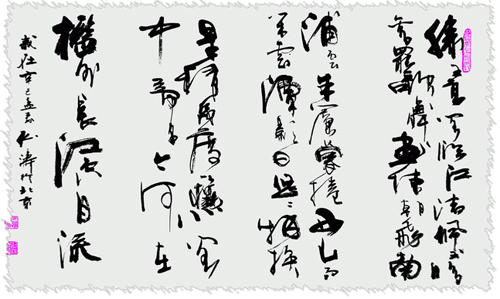 滕王高阁临江渚佩玉鸣
鸾罢歌舞画栋朝飞南
浦云朱帘暮卷西山雨
闲云潭影日悠悠物换
星移几度秋阁
中帝子今何在
槛外长江空自流
岁在辛巳